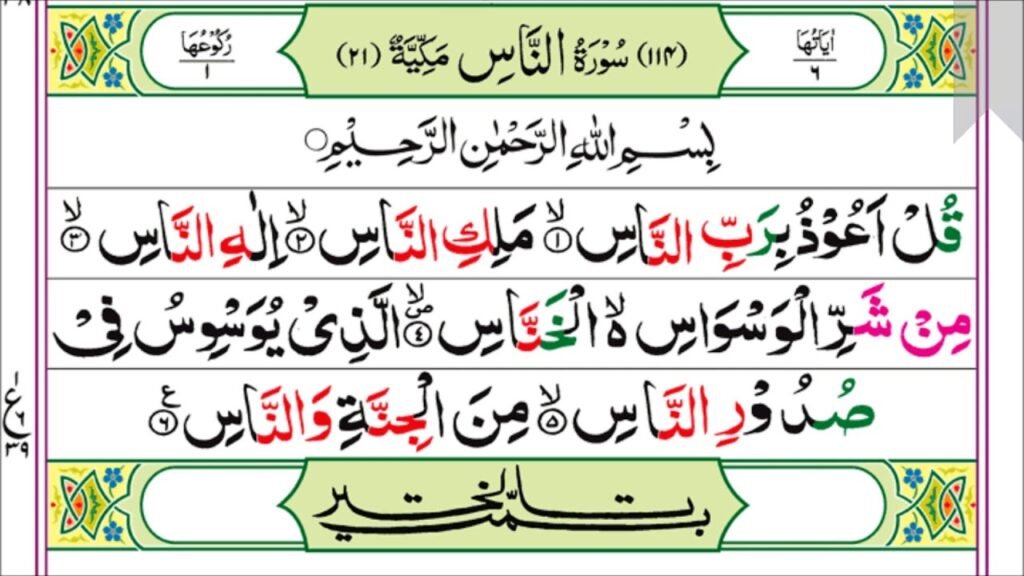 اٰيَاتُهَا ٦
(١١٤) سُوْرَةُ النَّاسِ مَكِّيَّةٌ (٢١)
رُكُوْعُهَا ١
بِسْمِ اللّٰهِ الرَّحْمٰنِ الرَّحِيْمِ
قُلْ اَعُوْذُ بِرَبِّ النَّاسِ ۙ﴿١﴾ مَلِكِ النَّاسِ ۙ﴿٢﴾ اِلٰهِ النَّاسِ ۙ﴿٣﴾
مِنْ شَرِّ الْوَسْوَاسِ ۙ۬ الْخَنَّاسِ ۪ۙ﴿٤﴾ الَّذِىْ يُوَسْوِسُ فِىْ
صُدُوْرِ النَّاسِ ۙ﴿٥﴾ مِنَ الْجِنَّةِ وَالنَّاسِ ع﴿٦﴾
ع
٦
٣٩